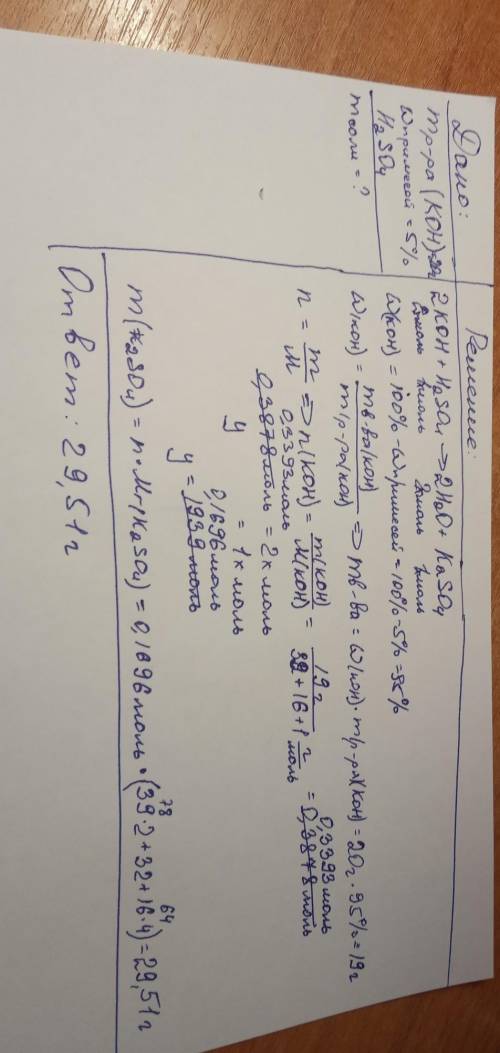 Дано:
mр-ра (KOH)=20г
ωпримесей = 5%
H₂SO₄
mсоли = ?
Решение:
2KOH + H₂SO₄ ⇒ 2H₂O + K₂SO₄
2моль 1моль 2моль 1моль
ω(KOH) = 100% - ωпримесей = 100% - 5% = 95%
ω(KOH) = mв-ва(KOH) / mр-ра(KOH) ⇒ mв-ва = ω(KOH) · mр-ра(KOH) = 20г · 95% = 19г
n = m / M ⇒ n(KOH) = m(KOH) / M(KOH) = 19г / 39 + 16 + 1 г/моль = 0,3393моль 0,3878моль
0,3393моль
0,3878моль = 2 x моль
y = 1 x моль
0,1696моль
y = 1939 моль
m(K₂SO₄) = n · Mr(K₂SO₄) = 0,1696моль · (39·2 + 32 + 16·4) = 29,51г
78 64
Ответ: 29,51г